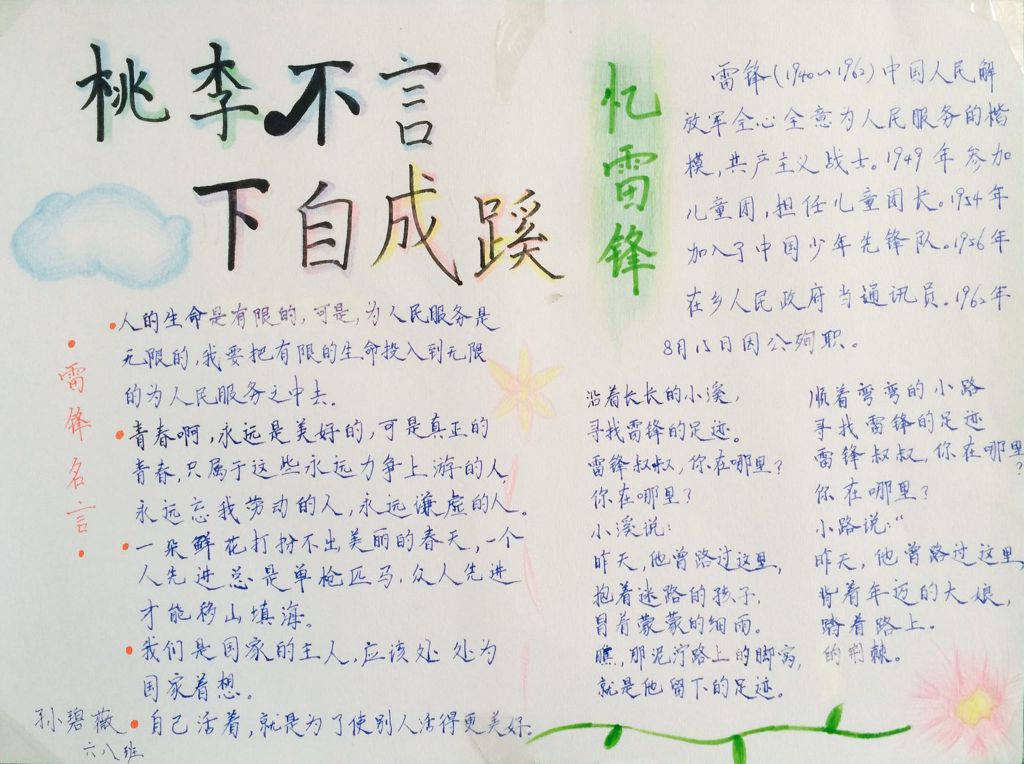 桃李不言
下自成蹊
忆雷锋
雷锋(1940~1962)中国人民解
放军全心全意为人民服务的楷
模,共产主义战士。1949年参加
儿童团,担任儿童团长。1954年
加入了中国少年先锋队。1956年
在乡人民政府当通讯员。1962年
8月15日因公殉职。
雷锋名言
人的生命是有限的,可是,为人民服务是
无限的,我要把有限的生命投入到无限
的为人民服务之中去。
青春啊,永远是美好的,可是真正的
青春,只属于这些永远力争上游的人
永远忘我劳动的人,永远谦虚的人。
一朵鲜花打扮不出美丽的春天,一个
人先进总是单枪匹马,众人先进
才能移山填海。
我们是国家的主人,应该处处为
国家着想。
自己活着,就是为了使别人活得更美好。
孙碧薇
六八班
沿着长长的小溪,
寻找雷锋的足迹。
雷锋叔叔,你在哪里?
你在哪里?
小溪说:
昨天,他曾路过这里,
抱着迷路的孩子,
冒着蒙蒙的细雨。
瞧,那泥泞路上的脚窝,
就是他留下的足迹。
顺着弯弯的小路
寻找雷锋的足迹
雷锋叔叔,你在哪里?
你在哪里?
小路说:“
昨天,他曾路过这里
背着年迈的大娘,
踏着路上。
的荆棘。